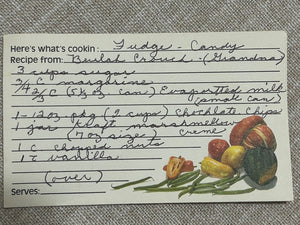 Here's what's cookin: Fudge - Candy
Recipe from: Beulah Crouch - (Grandma)
3 cups sugar
3/4 C margarine
2/3 C (5 1/3 oz can) Evaporated milk
(small can)
1 - 12 oz pkg (2 cups) Choclate Chips
1 jar Kraft marshmellow
(7 oz size) creme
1 C chopped nuts
1 t vanilla
(over)
Serves: